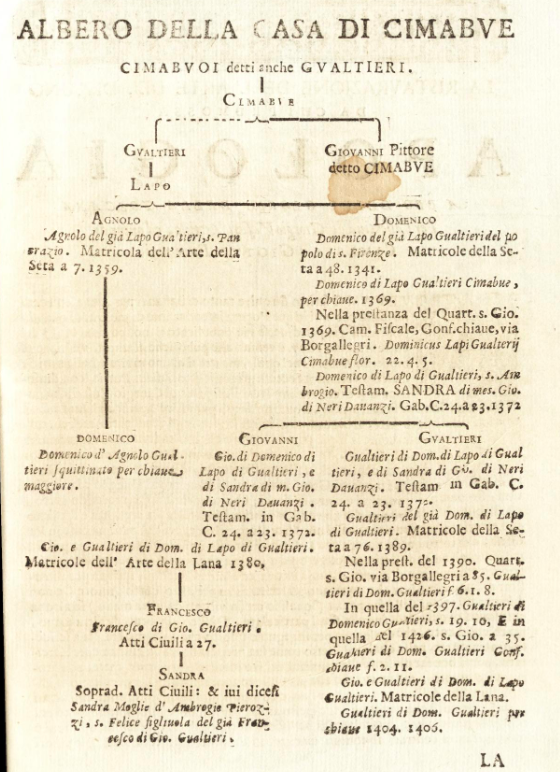 ALBERO DELLA CASA DI CIMABVE
CIMABVOI detti anche GVALTIERI.
CIMABVE
GVALTIERI
LAPO
GIOVANNI Pittore
detto CIMABVE
AGNOLO
Agnolo del già Lapo Gualtieri, s. Pan
crazio. Matricola dell' Arte della
Seta a 7. 1359.
DOMENICO
Domenico del già Lapo Gualtieri del po
polo di s. Firenze. Matricole della Se-
ta a 48. 1341.
Domenico di Lapo Gualtieri Cimabue,
per chiaue. 1369.
Nella prestanza del Quart. s. Gio.
1369. Cam. Fiscale, Gonf. chiaue, via
Borgallegri. Dominicus Lapi Gualterij
Cimabue flor. 22. 4. 5.
Domenico di Lapo di Gualtieri, s. Am
brogio. Testam. SANDRA di mes. Gio.
di Neri Dauanzi. Gab. C. 24. a 23. 1372
DOMENICO
Domenico d' Agnolo Gual-
tieri squittinato per chiaue
maggiore.
GIOVANNI
Gio. di Domenico di
Lapo di Gualtieri, e
di Sandra di m. Gio.
di Neri Dauanzi.
Testam. in Gab.
C. 24. a 23. 1372.
Gio. e Gualtieri di Dom. di Lapo di Gualtieri.
Matricole dell' Arte della Lana 1380.
FRANCESCO
Francesco di Gio. Gualtieri.
Atti Ciuili a 27.
SANDRA
Soprad. Atti Ciuili: & iui dicesi
Sandra Moglie d' Ambrogio Pieroz-
zi, s. Felice figliuola del già Fran-
cesco di Gio. Gualtieri.
GVALTIERI
Gualtieri di Dom. di Lapo di Gual
tieri, e di Sandra di Gio. di Neri
Dauanzi. Testam in Gab. C.
24. a 23. 137
Gualtieri del già Dom. di Lapo
di Gualtieri. Matricole della Se-
ta a 76. 1389.
Nella prest. del 1390. Quart.
s. Gio. via Borgallegri a 85. Gual-
tieri di Dom. Gualtieri f 6. 1. 8.
In quella del 1397. Gualtieri di
Domenico Gualtieri, s. 19. 10, E in
quella del 1426. s. Gio. a 35.
Gualtieri di Dom. Gualtieri Gonf.
chiaue f. 2. 11.
Gio. e Gualtieri di Dom. di Lapo
Gualtieri. Matricole della Lana.
Gualtieri di Dom. Gualtieri per
chiaue 1404. 1406.
LA